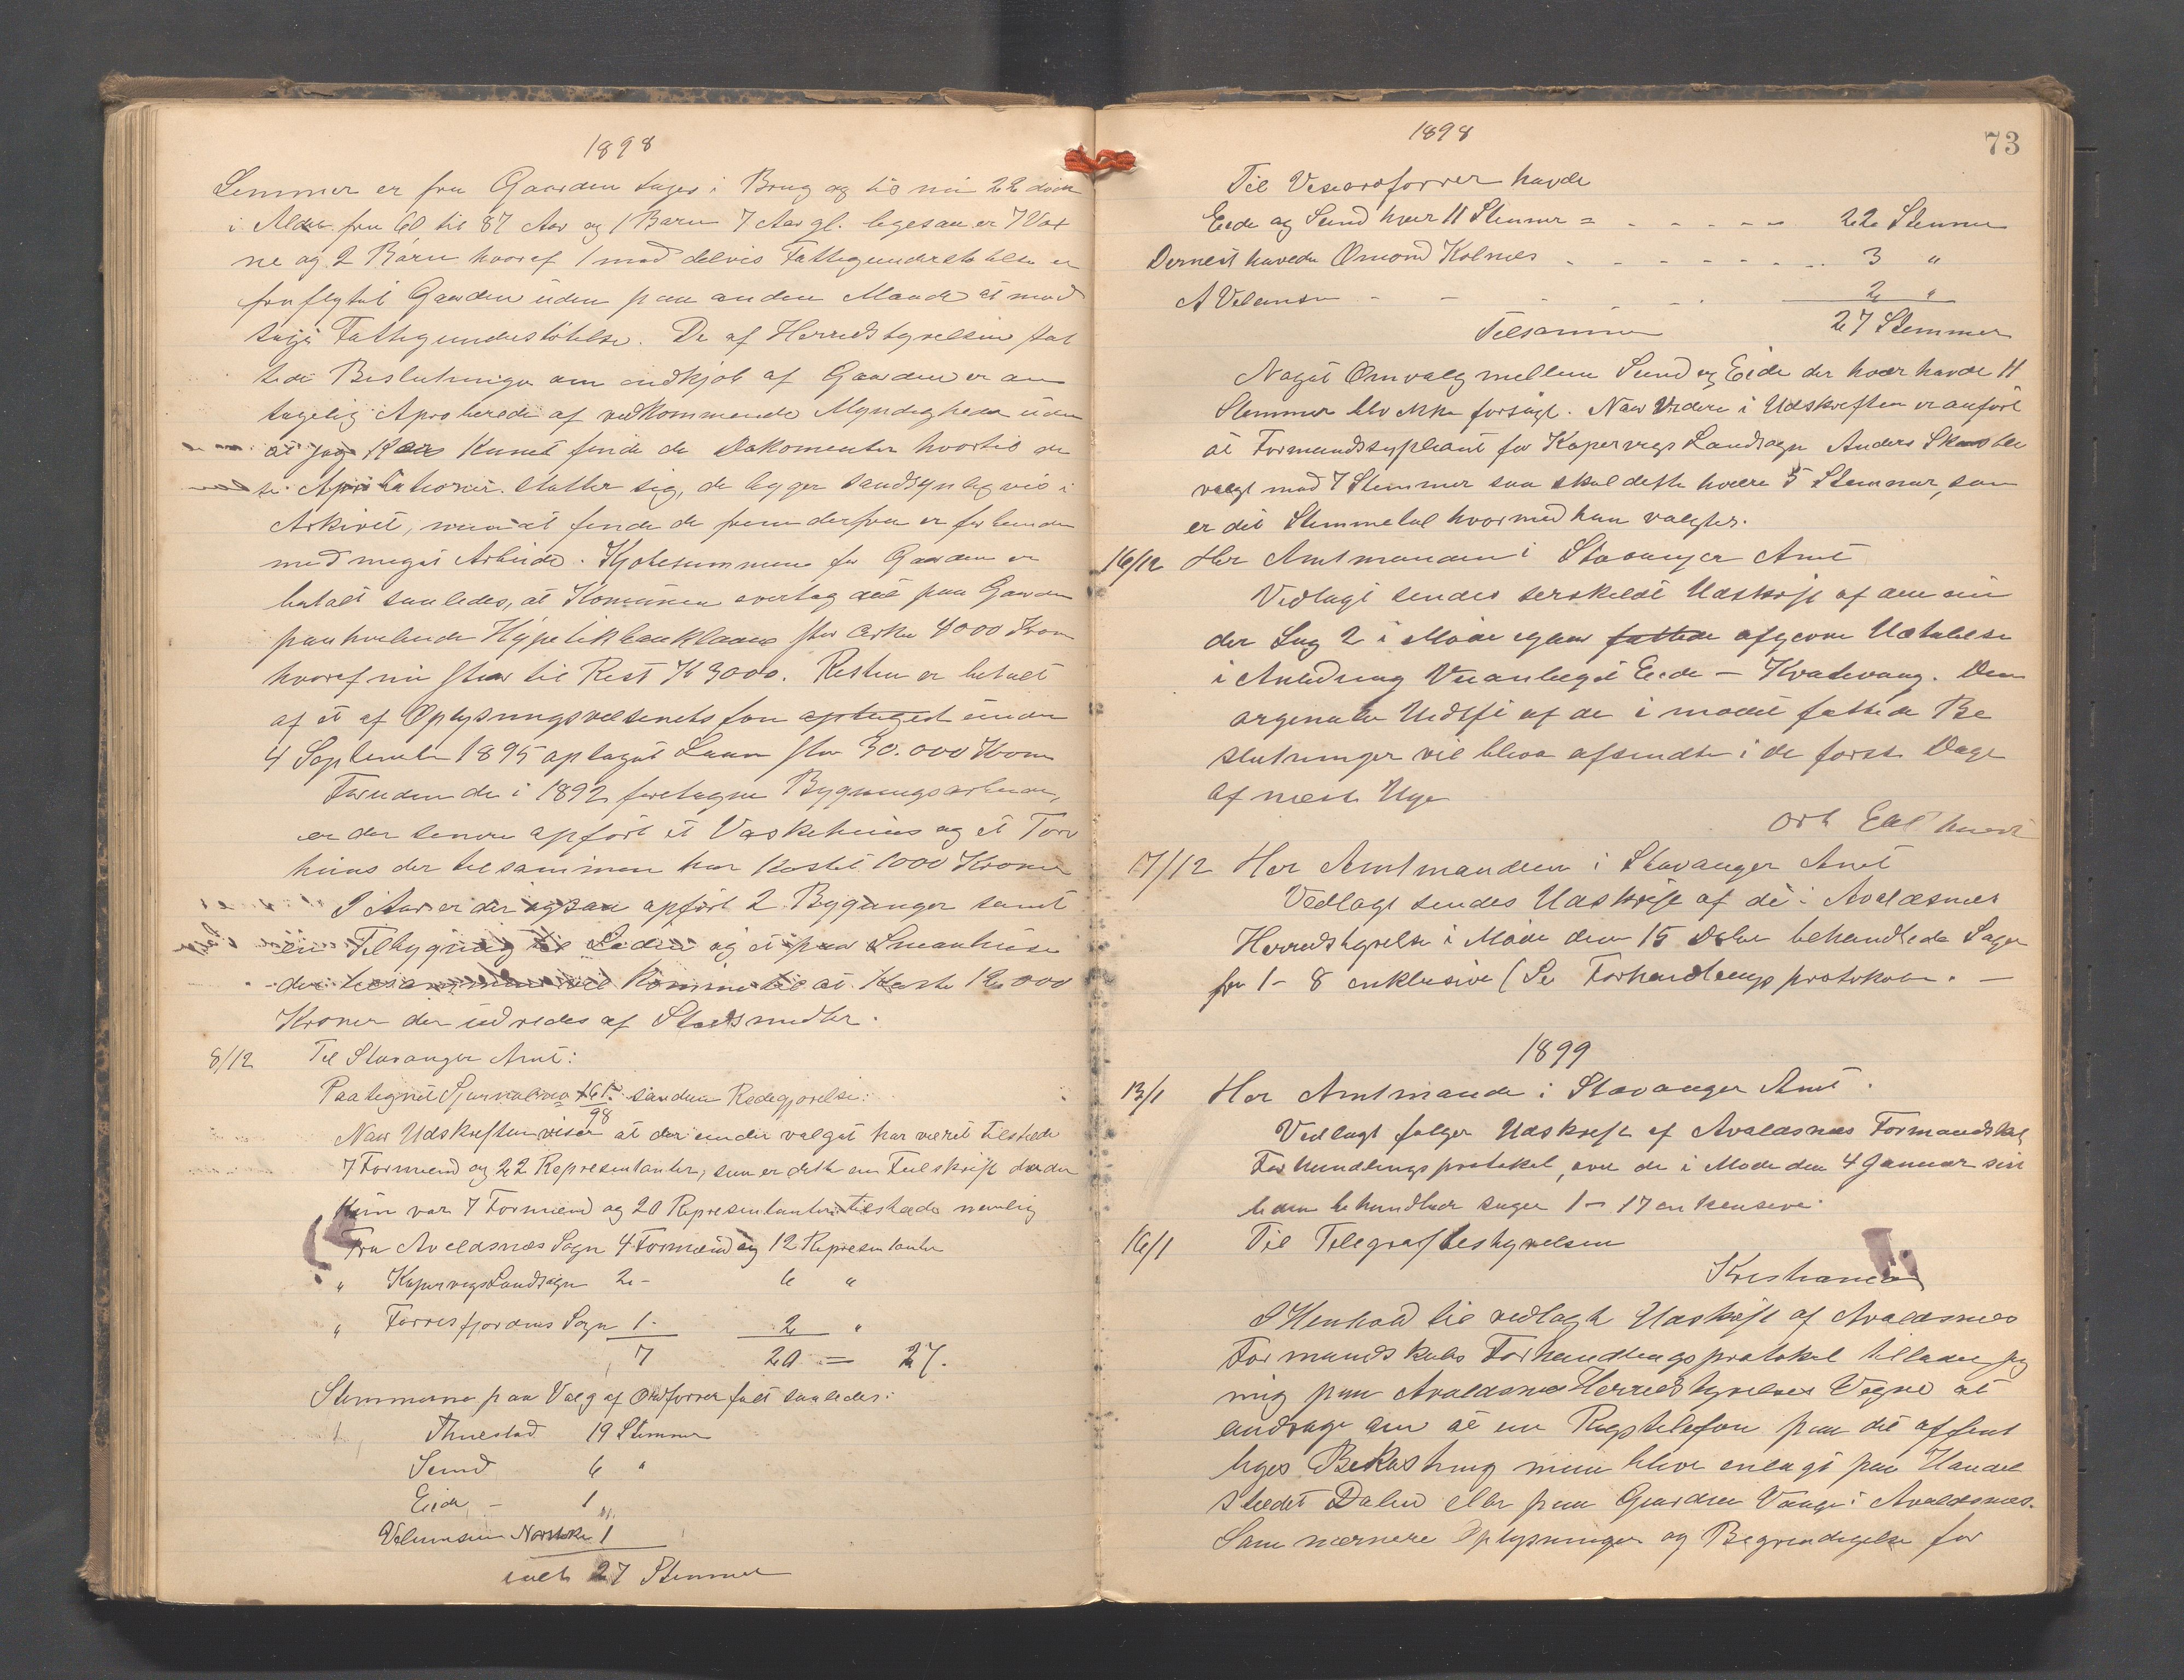 1898
Lemmer er fra Gaarden tages i Brug og til nu 22 døde
i Alder fra 60 til 87 Aar og 1 Barn 7 Aar gl. ligesaa er 7 Vox
ne og 2 Børn hvoraf 1 med delvis Fattigunderstøtelse er
fraflytet Gaarden uden paa anden Maade at mod
taga Fattigunderstøtelse. De af Herredstyrelsen fat
tede Beslutninger om indkjøb af Gaarden er an
tagelig Aproberede af vedkommende Myndigheder uden
at jeg har kunet finde de Dokomenter hvortil de
se Aprobationer støtter sig, de ligger sandsynligvis i
Arkivet, men at finde de frem derfra er forbunden
med meget Arbeide. Kjøbesummen for Gaarden er
betalt saaledes, at Komunen overtog det paa Gaarden
paahvilende Hypotekbanklaan stor cirka 4000 Kron
hvoraf nu staar til Rest Kr 3000. Resten er betalt
af et af Oplysningsvæsenets fon optaget under
4 September 1895 optaget Laan stor 30.000 Kron
Foruden de i 1892 foretagne Bygningsarbeider,
er der senere opført et Vaskehus og et Torv
huus der tilsammen har kostet 1000 Kroner
I Aar er der ogsaa opført 2 Bygninger samt
en Tilbygning til Laden og et paa Smaahuse
der tilsammen vil komme til at koste 12000
Kroner der udredes af Stadsmidler.
8/12 Til Stavanger Amt:
Paategnet Sjurnalno 1615/98 saadan Redegjørelse:
Naar Udskriften viser at der under valget har været tilstede
7 Formænd og 22 Representanter, saa er dette en Feilskrift da der
kun var 7 Formænd og 20 Representanter tilstede nemlig
Fra Avaldsnæs Sogn 4 Formænd og 12 Representanter
" Kopervigs Landsogn 2 - 6 "
" Førresfjordens Sogn 1 - 2 "
7 20 = 27.
Stemmerne paa Valg af Ordfører falt saaledes:
Thuestad 19 Stemmer
Sund 6 "
Eide - 1 "
Velumsen Norstokke 1
ialt 27 Stemmer
1898
73
Til Viseordfører havde
Eide og Sund hver 11 Stemmer = - - - - - 22 Stemmer
Dernæst havde Omond Kolnes - - - - - - - 3 "
A Velumsen - - - - - 2 "
Tilsammen 27 Stemmer
Noget Omvalg mellem Sund og Eide der hver havde 11
Stemmer blev ikke forsøgt. Naar videre i Udskriften er anført
at Formandssupleant for Kopervigs Landsogn Anders Skaar ble
valgt med 7 Stemmer saa skal dette hvære 5 Stemmer, som
er det Stemmetal hvormed han valgtes.
16/12 Her Amtmanden i Stavanger Amt
Vedlagt sendes serskeldt Udskrift af den un
der Sag 2 i Møde igaar fattede afgivne Udtalelse
i Anledning Veianlæget Eide – Kvalevaag. Den
orginale Udskft af de i mødet fattede Be
slutninger vil blive afsendt i de første Dage
af næste Uge
17/12 Her Amtmanden i Stavanger Amt
Vedlagt sendes Udskrift af de i Avaldsnes
Herredstyrelse i Møde den 15 Dsbr behandlede Sager
fra 1 - 8 inklusive (Se Forhandlingsprotokolen. –
1899
13/1 Her Amtmande i Stavanger Amt.
Vedlagt følger Udskrift af Avaldsnæs Formandskab
Forhandlingsprotokol, over de i Møde den 4 Januar sist
leden behandlede sager 1 – 17 inklusive.
16/1 Til Telegrafbestyrelsen
Kristiania
I Henhold til vedlagte Udskrift af Avaldsnes
Formandskabs Forhandlingsprotokol tillader jeg
mig paa Avaldsnes Herredstyrelses Vegne at
andrage om at en Rigstelefon paa det offent
liges Bekostning maa blive anlagt paa Handel
stedet Dalen eller paa Gaarden Vaage i Avaldsnes.
Som nærmere Oplysninger og Begrundigelse for